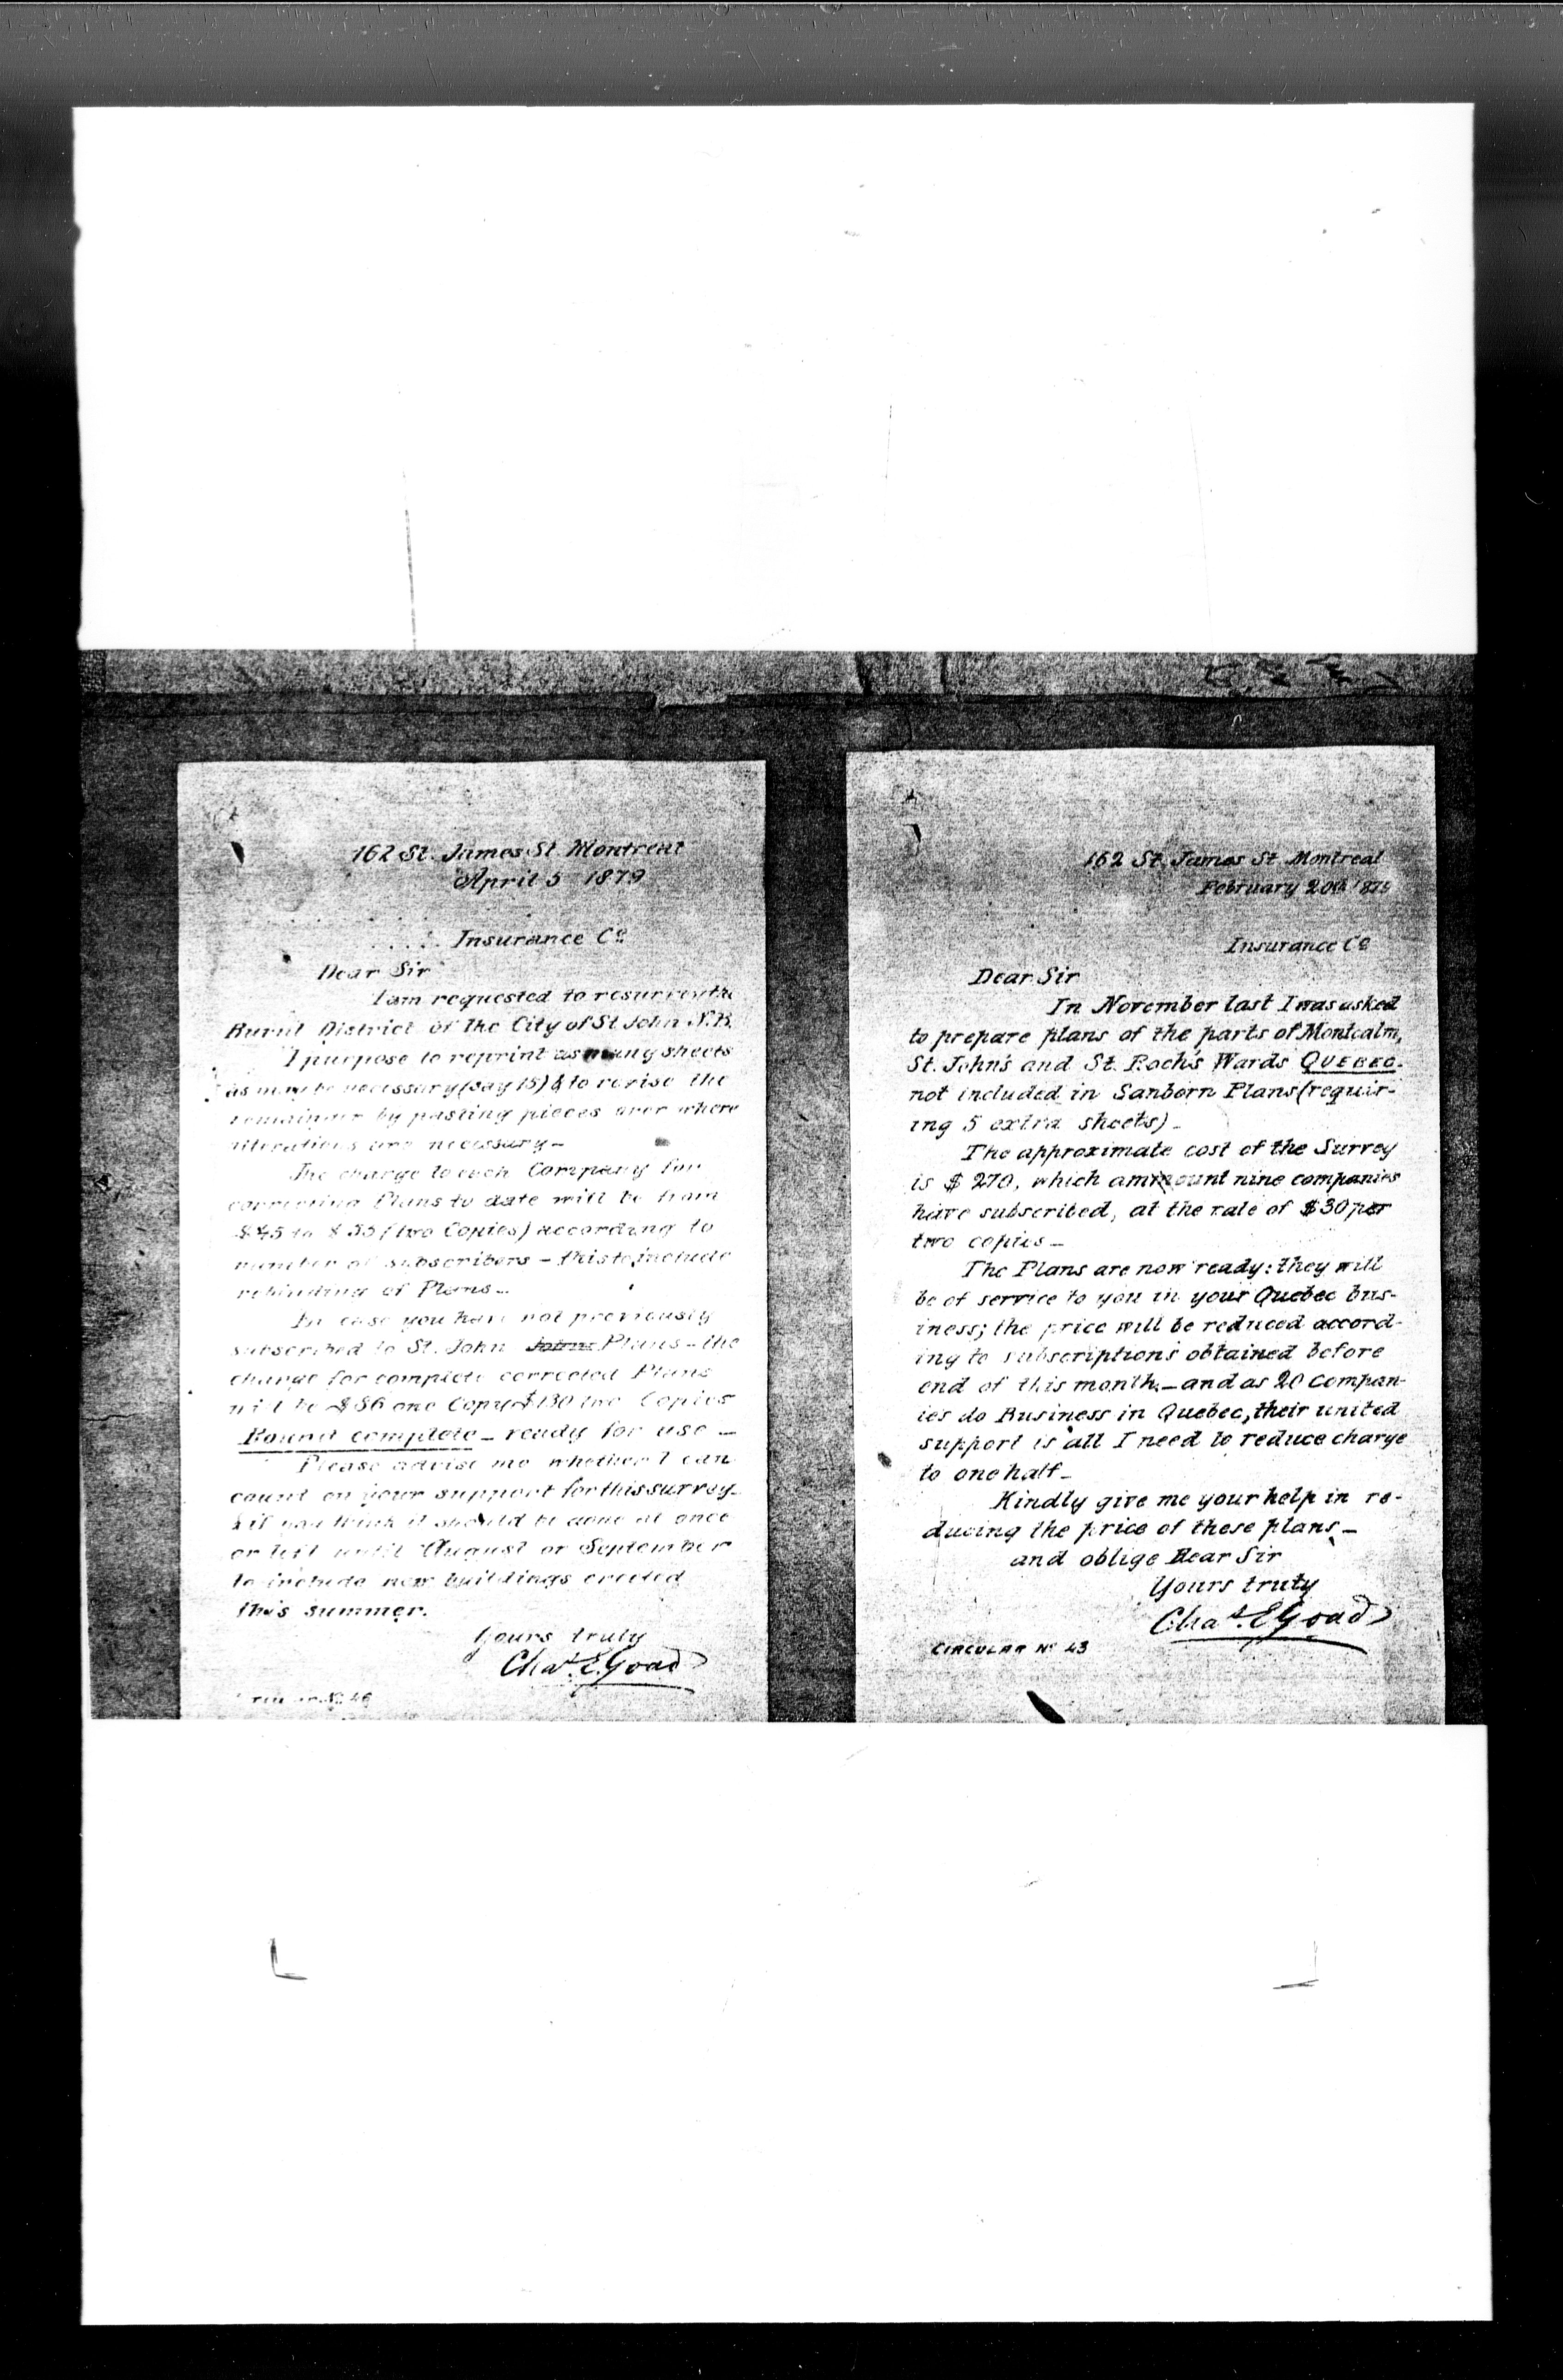 162 St. James St Montreal
April 5 1879
Insurance Co
Dear Sir
I am requested to resurvey the
Burnt District of the City of St John N.B.
I purpose to reprint as many sheets
as may be necessary (say 15) & to revise the
remainder by pasting pieces over where
alterations are necessary –
The charge to each Company for
correcting Plans to date will be from
$45 to $55 (two Copies) according to
number of subscribers – this to include
rebinding of Plans –
In case you have not previously
subscribed to St. John Johns Plans – the
charge for complete corrected Plans
will be $86 one Copy $130 two Copies
Bound complete – ready for use –
Please advise me whether I can
count on your support for this survey –
& if you think it should be done at once
or left until August or September
to include new buildings erected
this summer.
Yours truly
Chas. E. Goad
No. 46
162 St. James St Montreal
February 20th 1879
Insurance Co
Dear Sir
In November last I was asked
to prepare plans of the parts of Montcalm,
St. John's and St. Roch's Wards QUEBEC.
not included in Sanborn Plans (requir-
ing 5 extra sheets) –
The approximate cost of the Survey
is $ 270, which ammount nine companies
have subscribed, at the rate of $30 per
two copies –
The Plans are now ready: they will
be of service to you in your Quebec bus-
iness; the price will be reduced accord-
ing to subscriptions obtained before
end of this month. – and as 20 Compan-
ies do Business in Quebec, their united
support is all I need to reduce charge
to one half –
Kindly give me your help in re-
ducing the price of these plans –
and oblige Dear Sir
Yours truly
Chas. E Goad
CIRCULAR No 43